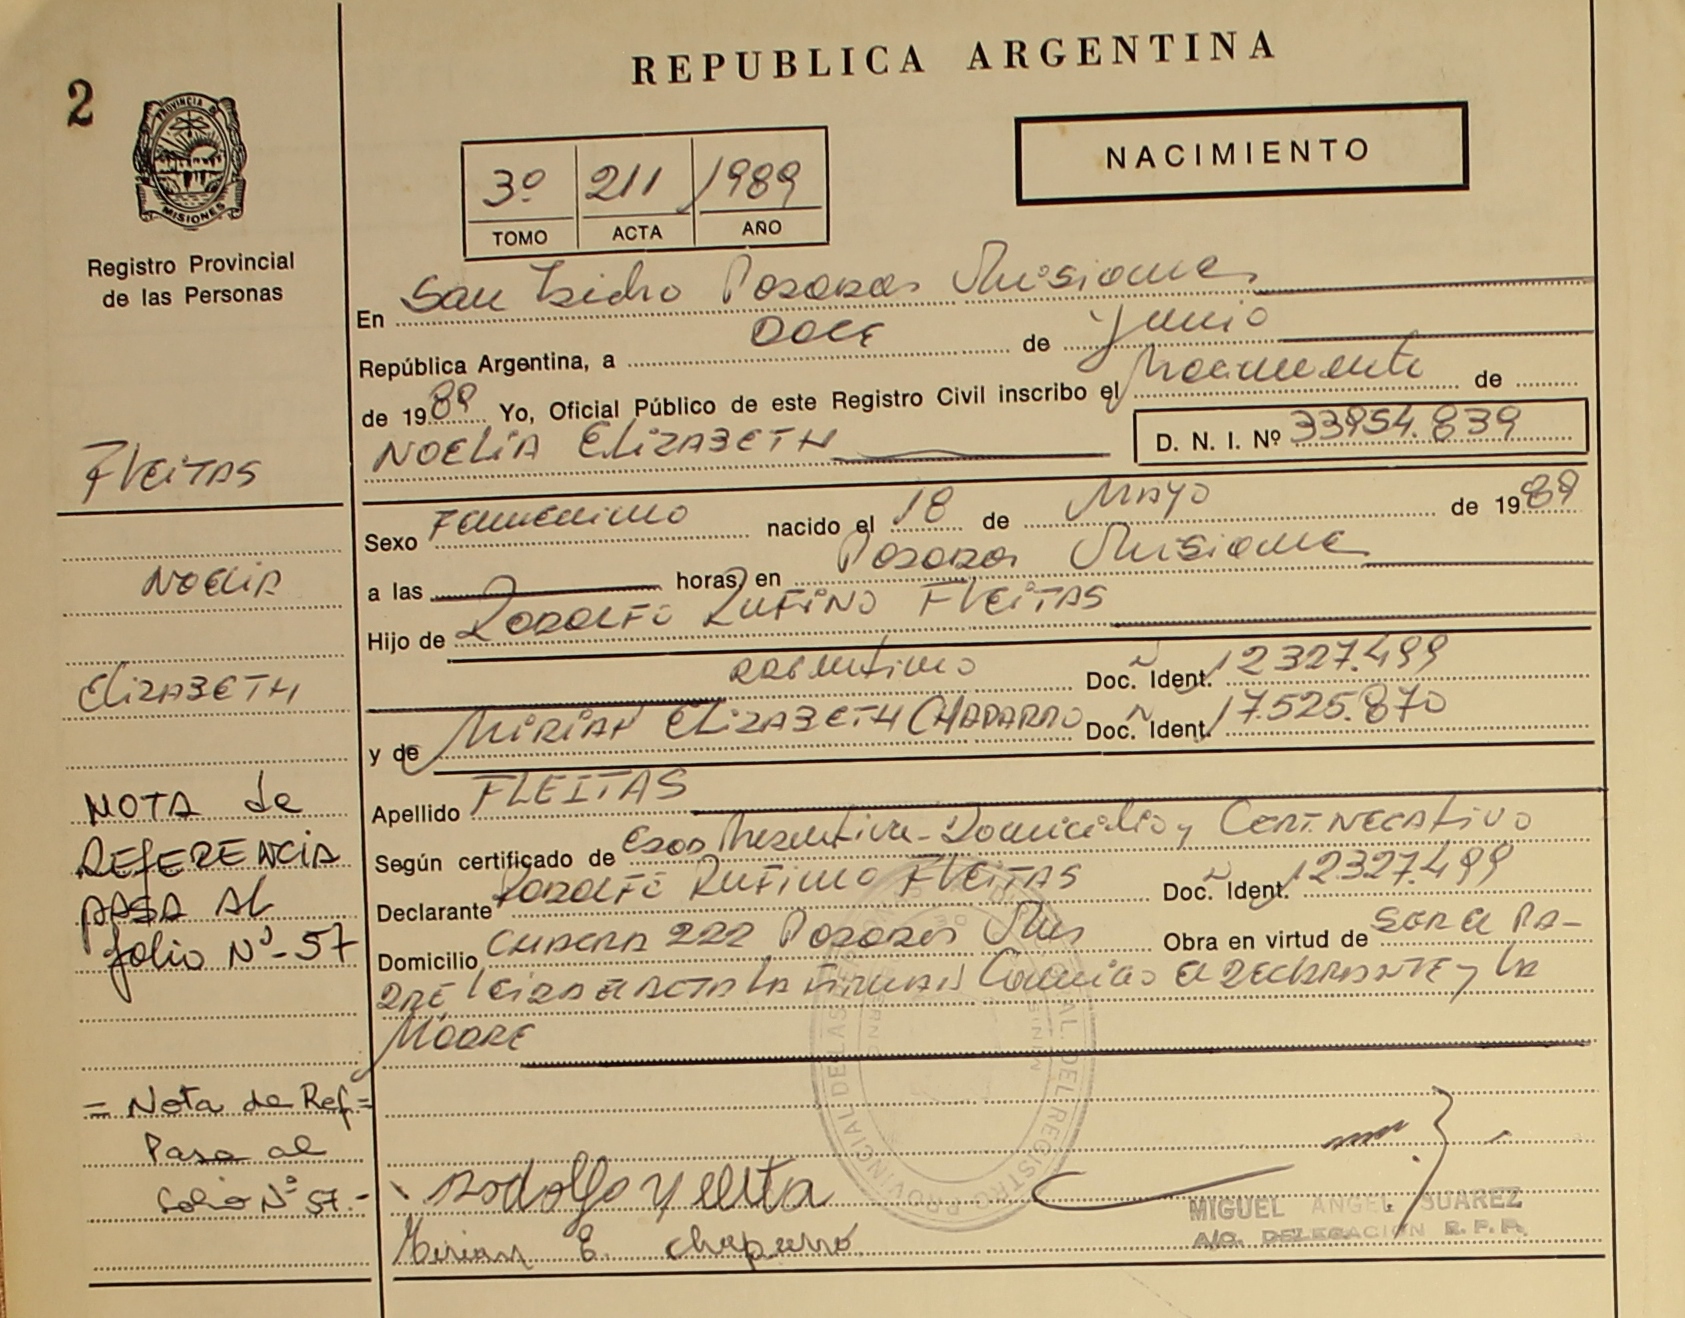 2
REPUBLICA ARGENTINA
PROVINCIA DE
MISIONES
Registro Provincial
de las Personas
3º 211 1989
TOMO ACTA AÑO
NACIMIENTO
En San Isidro Posadas Misiones
República Argentina, a Doce de Junio
de 1989 Yo, Oficial Público de este Registro Civil inscribo el Nacimiento de
NOELIA ELIZABETH D. N. I. Nº 33954.839
Sexo Femenino nacido el 18 de Mayo de 1989
a las horas en Posadas Misiones
Hijo de RODOLFO RUFINO FLEITAS
argentino Doc. Ident. 12327.499
y de MIRIAN ELIZABETH CHAPARRO Doc. Ident. 17.525.870
Apellido FLEITAS
Según certificado de Domicilio y CERT. NEGATIVO
Declarante RODOLFO RUFINO FLEITAS Doc. Ident. 12327.499
Domicilio 222 Posadas Mnes Obra en virtud de SER el PA-
DRE Leida el ACTA LA FIRMAN Conmigo el DECLARANTE y LA
MADRE
FLEITAS
NOELIA
ELIZABETH
NOTA de
REFERENCIA
PASA AL
folio Nº- 57
= Nota de Ref.=
Pasa al
folio Nº 57.-
Rodolfo Fleita
Mirian E. Chaparro
MIGUEL ANGEL SUAREZ
A/C. DELEGACION R. P. P.
REGISTRO PROVINCIAL DE LAS